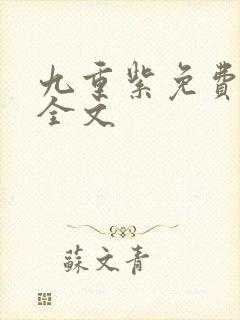 九重紫免費
全文
蘇文青